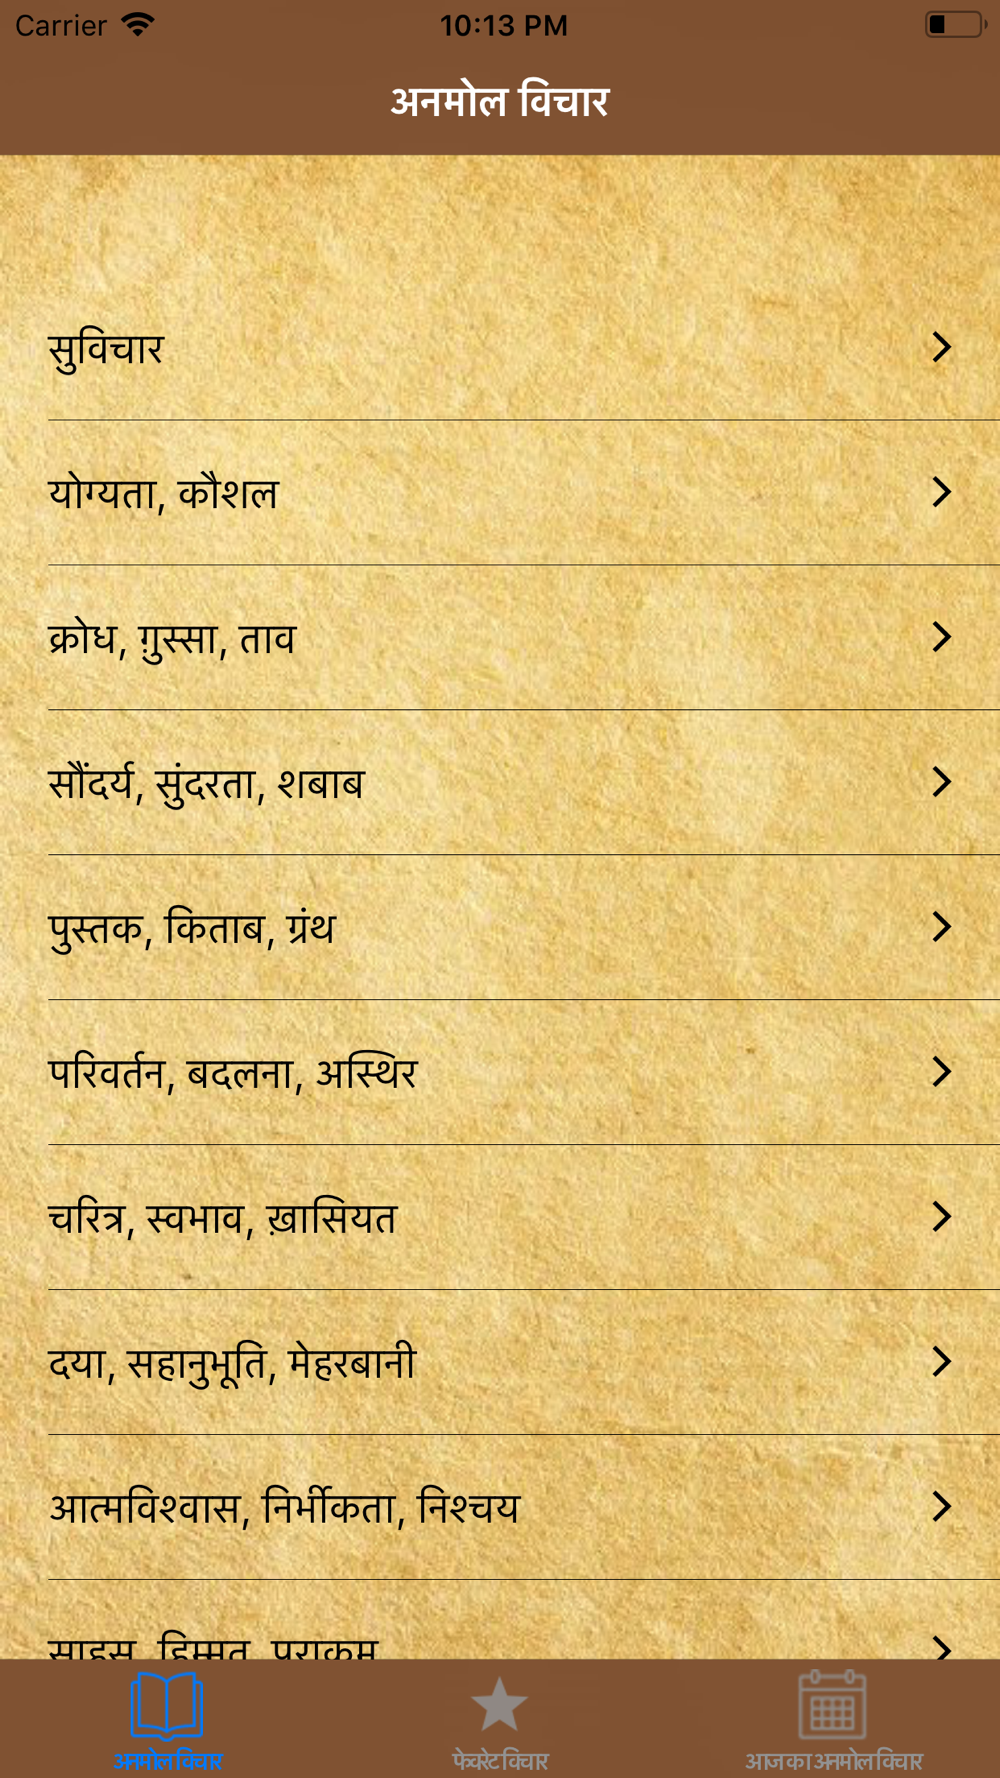 Carrier 10:13 PM
अनमोल विचार
सुविचार
योग्यता, कौशल
क्रोध, ग़ुस्सा, ताव
सौंदर्य, सुंदरता, शबाब
पुस्तक, किताब, ग्रंथ
परिवर्तन, बदलना, अस्थिर
चरित्र, स्वभाव, ख़ासियत
दया, सहानुभूति, मेहरबानी
आत्मविश्वास, निर्भीकता, निश्चय
साहस, हिम्मत, पराक्रम
अनमोल विचार फेवरेट विचार आज का अनमोल विचार